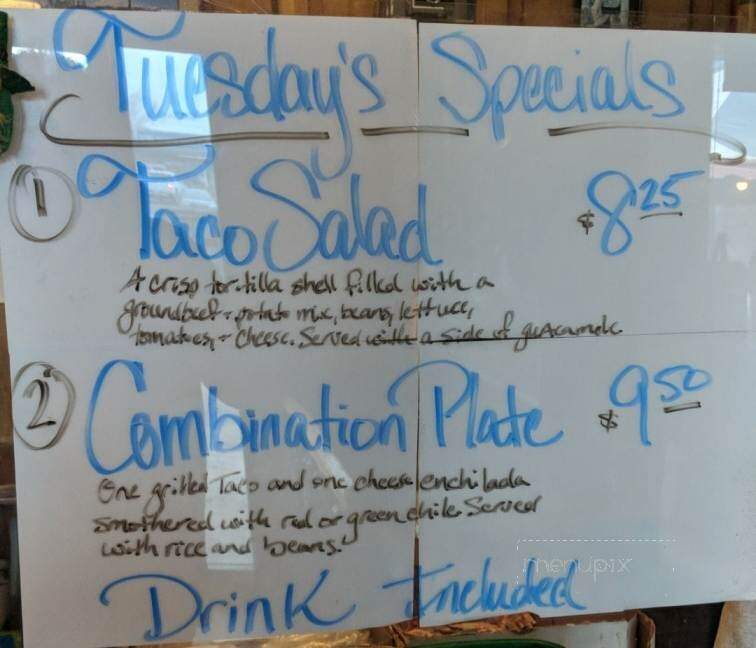 Tuesday's Specials
1 Taco Salad $8.25
A crisp tortilla shell filled with a
groundbeef + potato mix, beans, lettuce,
tomatoes, + cheese. Served with a side of guacamole.
2 Combination Plate $9.50
One grilled Taco and one cheese enchilada
smothered with red or green chile. Served
with rice and beans.
Drink Included
menupix